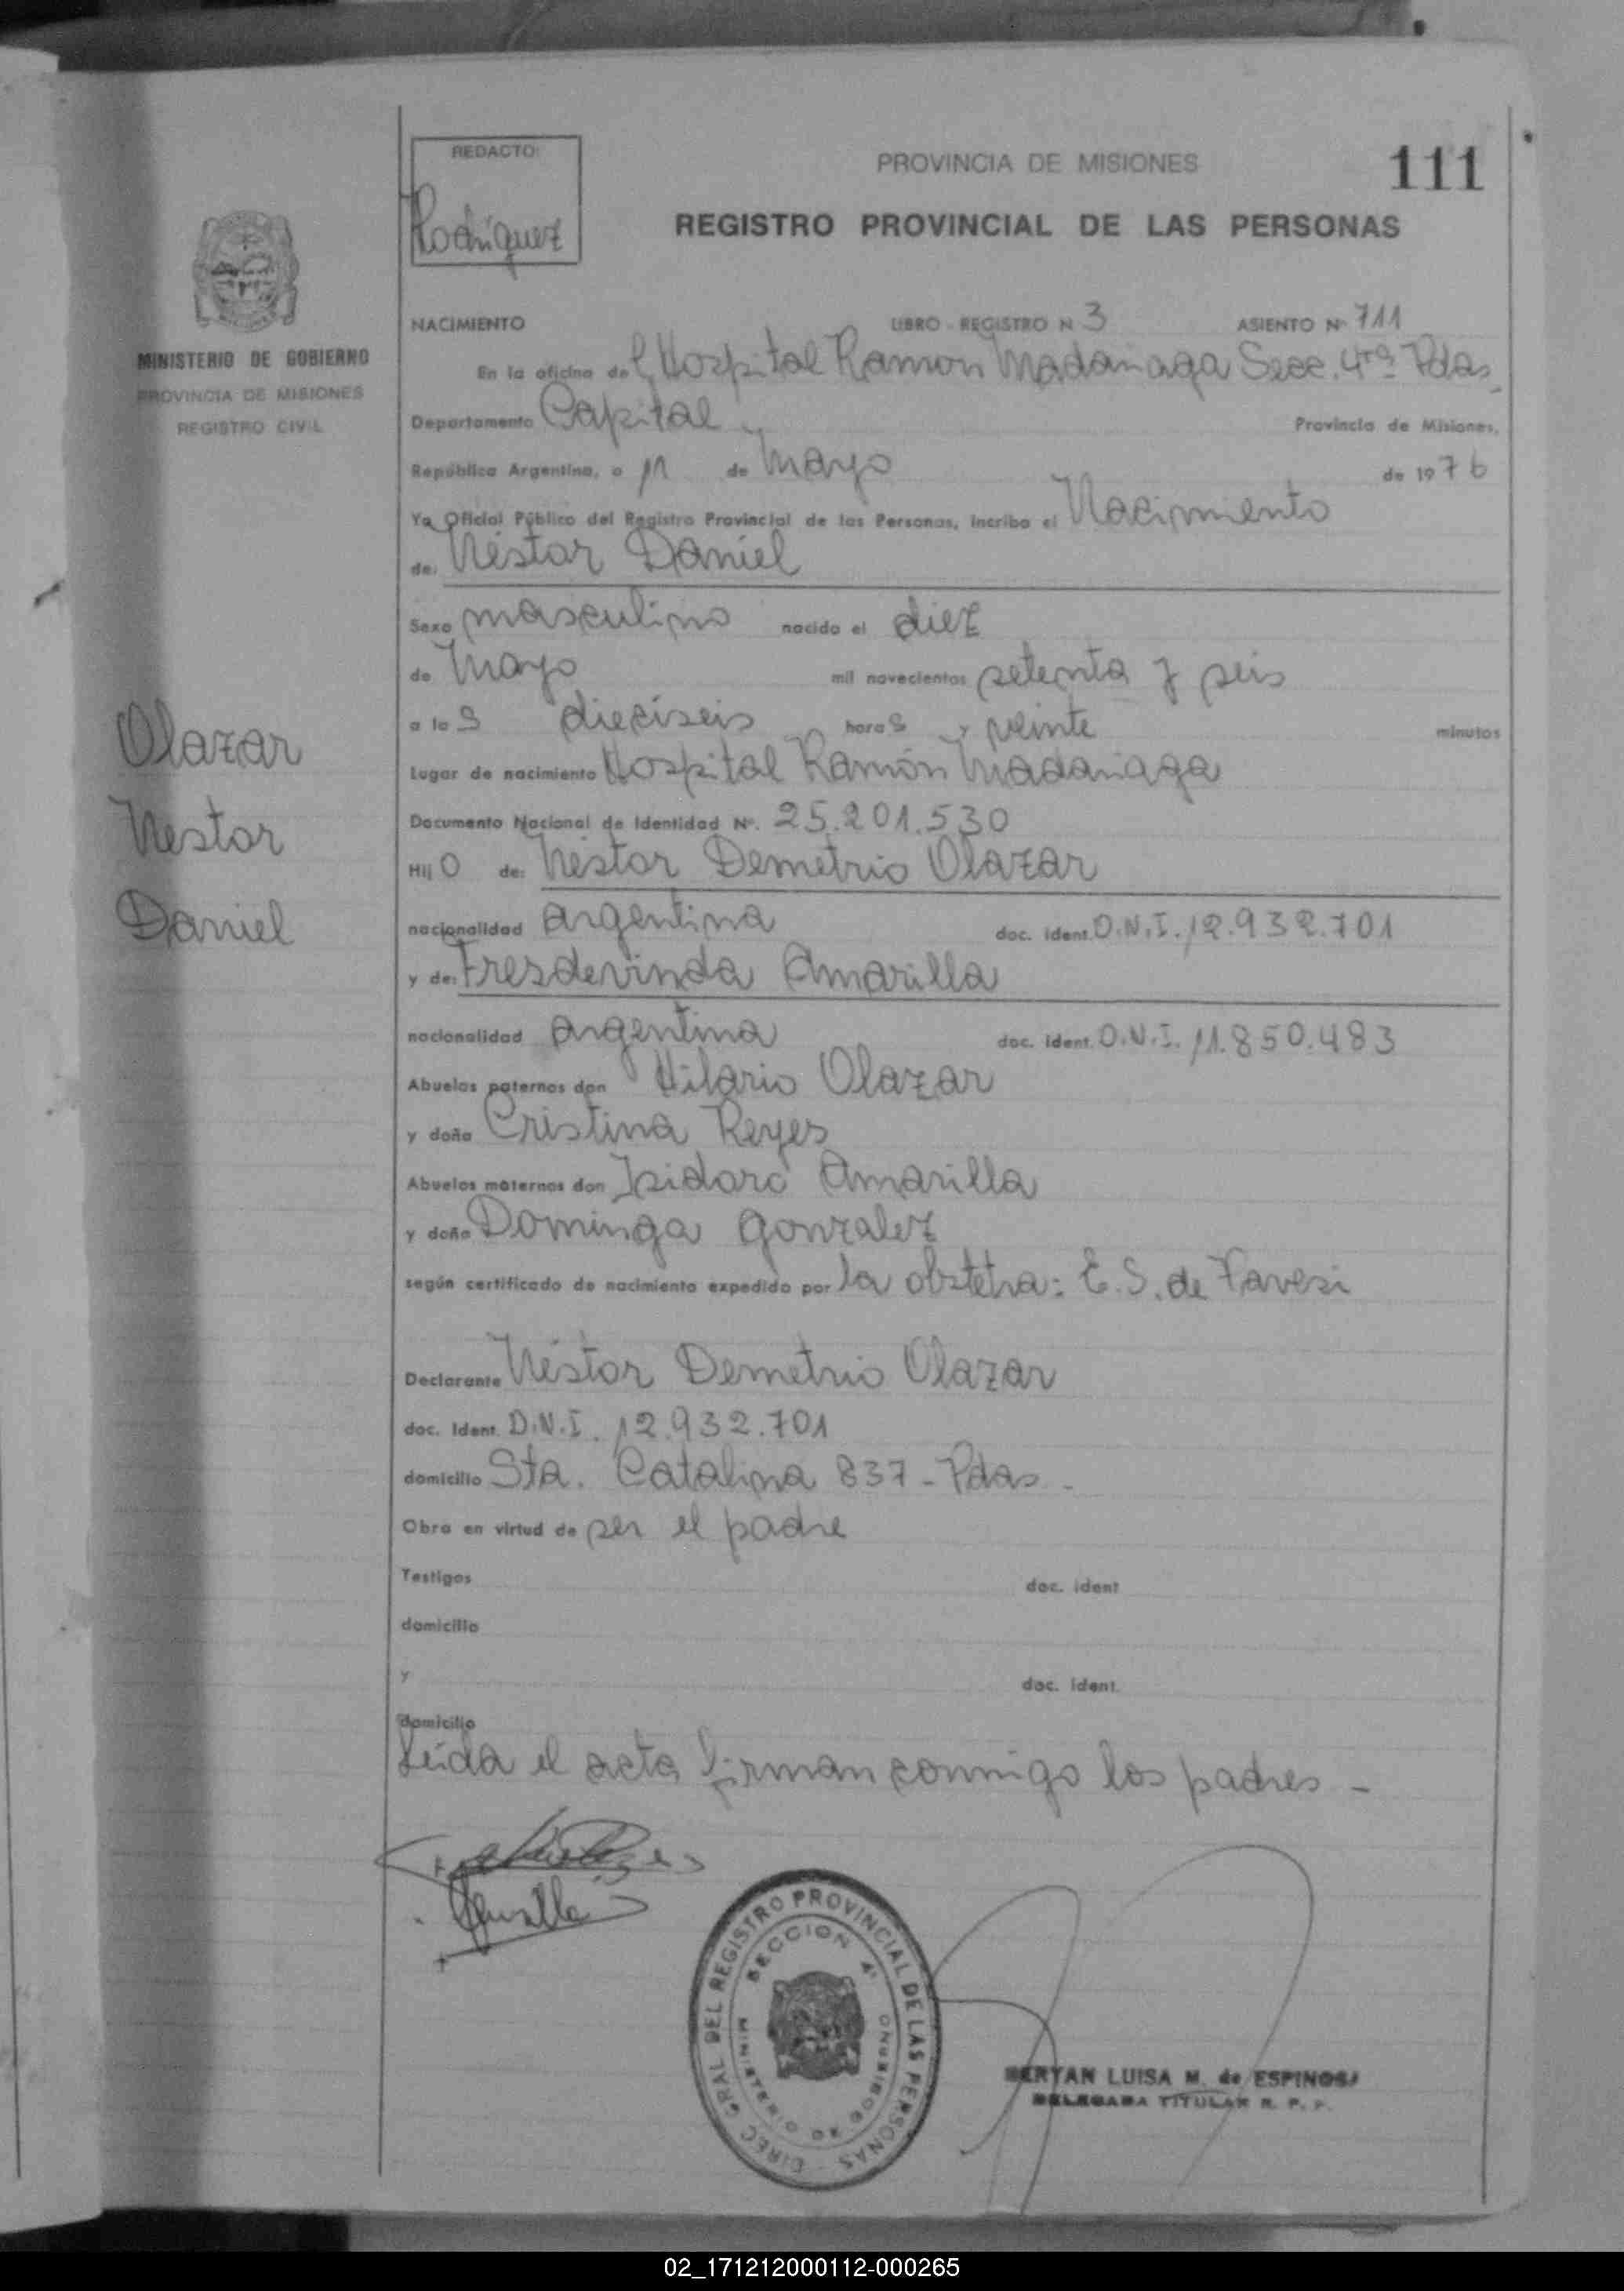 REDACTO:
Rodríguez
PROVINCIA DE MISIONES
111
REGISTRO PROVINCIAL DE LAS PERSONAS
MINISTERIO DE GOBIERNO
PROVINCIA DE MISIONES
REGISTRO CIVIL
NACIMIENTO LIBRO - REGISTRO N 3 ASIENTO Nº 711
En la oficina del Hospital Ramón Madariaga Secc. 4ta Pdas.
Departamento Capital Provincia de Misiones,
República Argentina, a 11 de Mayo de 1976
Yo Oficial Público del Registro Provincial de las Personas, incribo el Nacimiento
de: Néstor Daniel
Sexo masculino nacido el diez
de Mayo mil novecientos setenta y seis
a las dieciseis horas y veinte minutos
Lugar de nacimiento Hospital Ramón Madariaga
Documento Nacional de Identidad Nº. 25.201.530
Hijo de: Néstor Demetrio Olazar
nacionalidad argentina doc. ident. D.N.I. 12.932.701
y de: Fresdevinda Amarilla
nacionalidad argentina doc. ident. D.N.I. 11.850.483
Abuelos paternos don Hilario Olazar
y doña Cristina Reyes
Abuelos maternos don Isidoro Amarilla
y doña Dominga Gonzalez
según certificado de nacimiento expedido por la obstetra: E.S. de
Declarante Néstor Demetrio Olazar
doc. Ident. D.N.I. 12.932.701
domicilio Sta. Catalina 837 - Pdas -
Obra en virtud de ser el padre
Testigos doc. ident
domicilio
y doc. ident.
domicilio
Leida el acta firman conmigo los padres -
Olazar
Nestor
Daniel
DIREC. GRAL DEL REGISTRO PROVINCIAL DE LAS PERSONAS
SECCION 4ª
MINISTERIO DE GOBIERNO
BERTAN LUISA M. de ESPINOSA
DELEGADA TITULAR R. P. P.
02_171212000112-000265